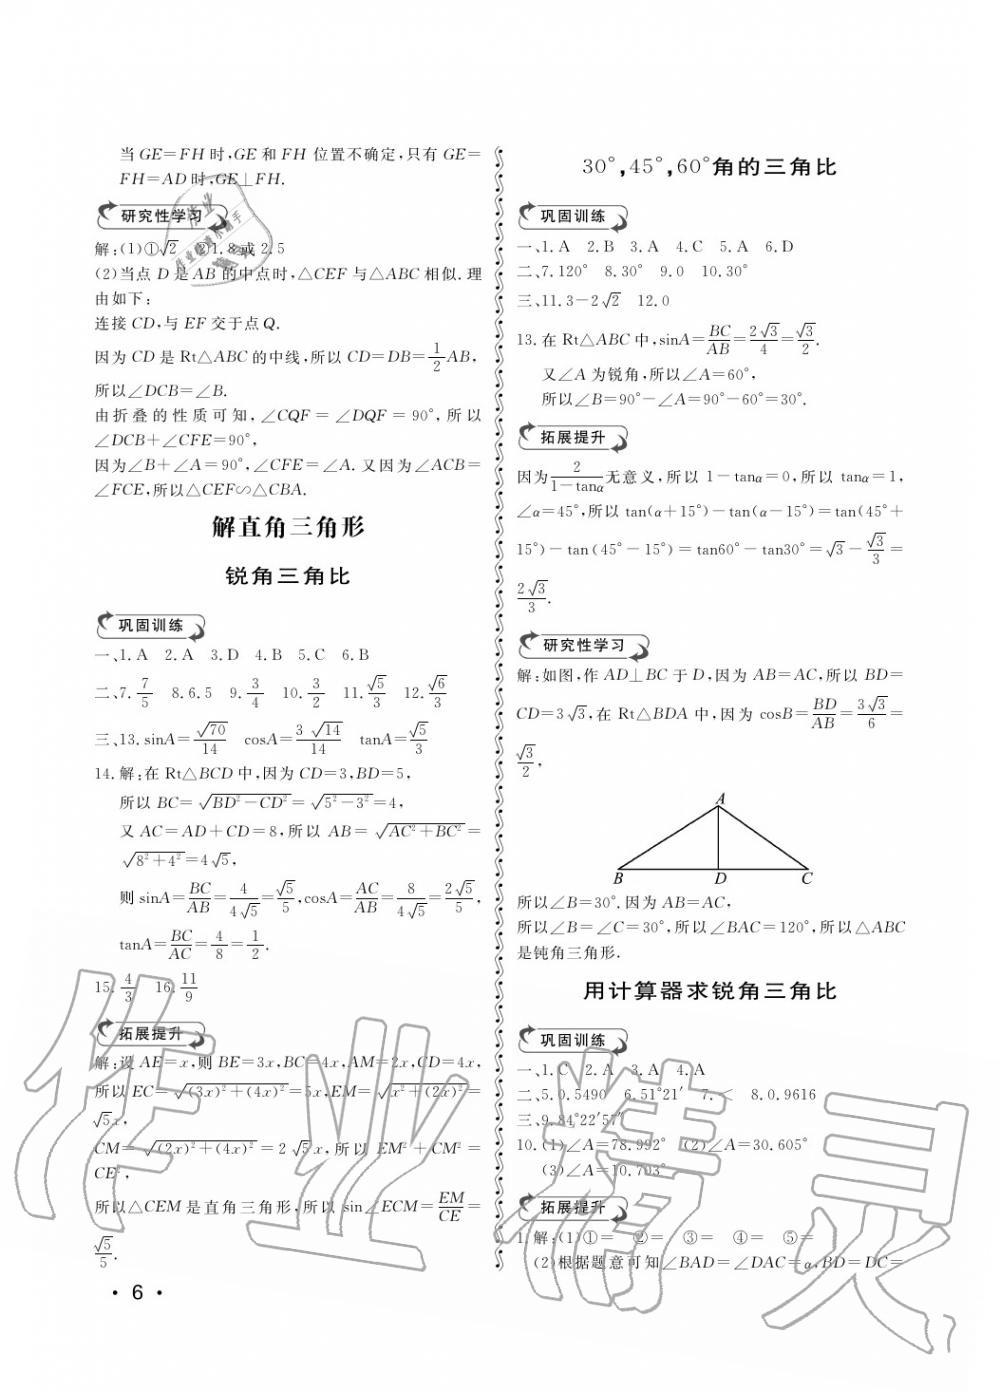 当GE=FH时,GE和FH位置不确定,只有GE=
FH=AD时,GE⊥FH.
研究性学习
解:(1)①√2 ②1.8或2.5
(2)当点D是AB的中点时,△CEF与△ABC相似.理
由如下:
连接CD,与EF交于点Q.
因为CD是Rt△ABC的中线,所以CD=DB=1/2AB,
所以∠DCB=∠B.
由折叠的性质可知,∠CQF=∠DQF=90°,所以
∠DCB+∠CFE=90°,
因为∠B+∠A=90°,∠CFE=∠A.又因为∠ACB=
∠FCE,所以△CEF∽△CBA.
解直角三角形
锐角三角比
巩固训练
一、1.A 2.A 3.D 4.B 5.C 6.B
二、7.7/5 8.6.5 9.3/4 10.3/2 11.√5/3 12.√6/3
三、13.sinA=√70/14 cosA=3√14/14 tanA=√5/3
14.解:在Rt△BCD中,因为CD=3,BD=5,
所以BC=√(BD²-CD²)=√(5²-3²)=4,
又AC=AD+CD=8,所以AB=√(AC²+BC²)=
√(8²+4²)=4√5,
则sinA=BC/AB=4/(4√5)=√5/5,cosA=AC/AB=8/(4√5)=2√5/5,
tanA=BC/AC=4/8=1/2.
15.4/3 16.11/9
拓展提升
解:设AE=x,则BE=3x,BC=4x,AM=2x,CD=4x,
所以EC=√((3x)²+(4x)²)=5x,EM=√(x²+(2x)²)=
√5x,
CM=√((2x)²+(4x)²)=2√5x,所以EM²+CM²=
CE²,
所以△CEM是直角三角形,所以sin∠ECM=EM/CE=
√5/5.
·6·
30°,45°,60°角的三角比
巩固训练
一、1.A 2.B 3.A 4.C 5.A 6.D
二、7.120° 8.30° 9.0 10.30°
三、11.3-2√2 12.0
13.在Rt△ABC中,sinA=BC/AB=2√3/4=√3/2.
又∠A为锐角,所以∠A=60°,
所以∠B=90°-∠A=90°-60°=30°.
拓展提升
因为2/(1-tanα)无意义,所以1-tanα=0,所以tanα=1,
∠α=45°,所以tan(α+15°)-tan(α-15°)=tan(45°+
15°)-tan(45°-15°)=tan60°-tan30°=√3-√3/3=
2√3/3.
研究性学习
解:如图,作AD⊥BC于D,因为AB=AC,所以BD=
CD=3√3,在Rt△BDA中,因为cosB=BD/AB=3√3/6=
√3/2,
A
B D C
所以∠B=30°.因为AB=AC,
所以∠B=∠C=30°,所以∠BAC=120°,所以△ABC
是钝角三角形.
用计算器求锐角三角比
巩固训练
一、1.C 2.A 3.A 4.A
二、5.0.5490 6.51°21′ 7.< 8.0.9616
三、9.84°22′57″
10.(1)∠A=78.992° (2)∠A=30.605°
(3)∠A=10.703°
拓展提升
1.解:(1)①= ②= ③= ④= ⑤=
(2)根据题意可知∠BAD=∠DAC=α,BD=DC=
作业精灵